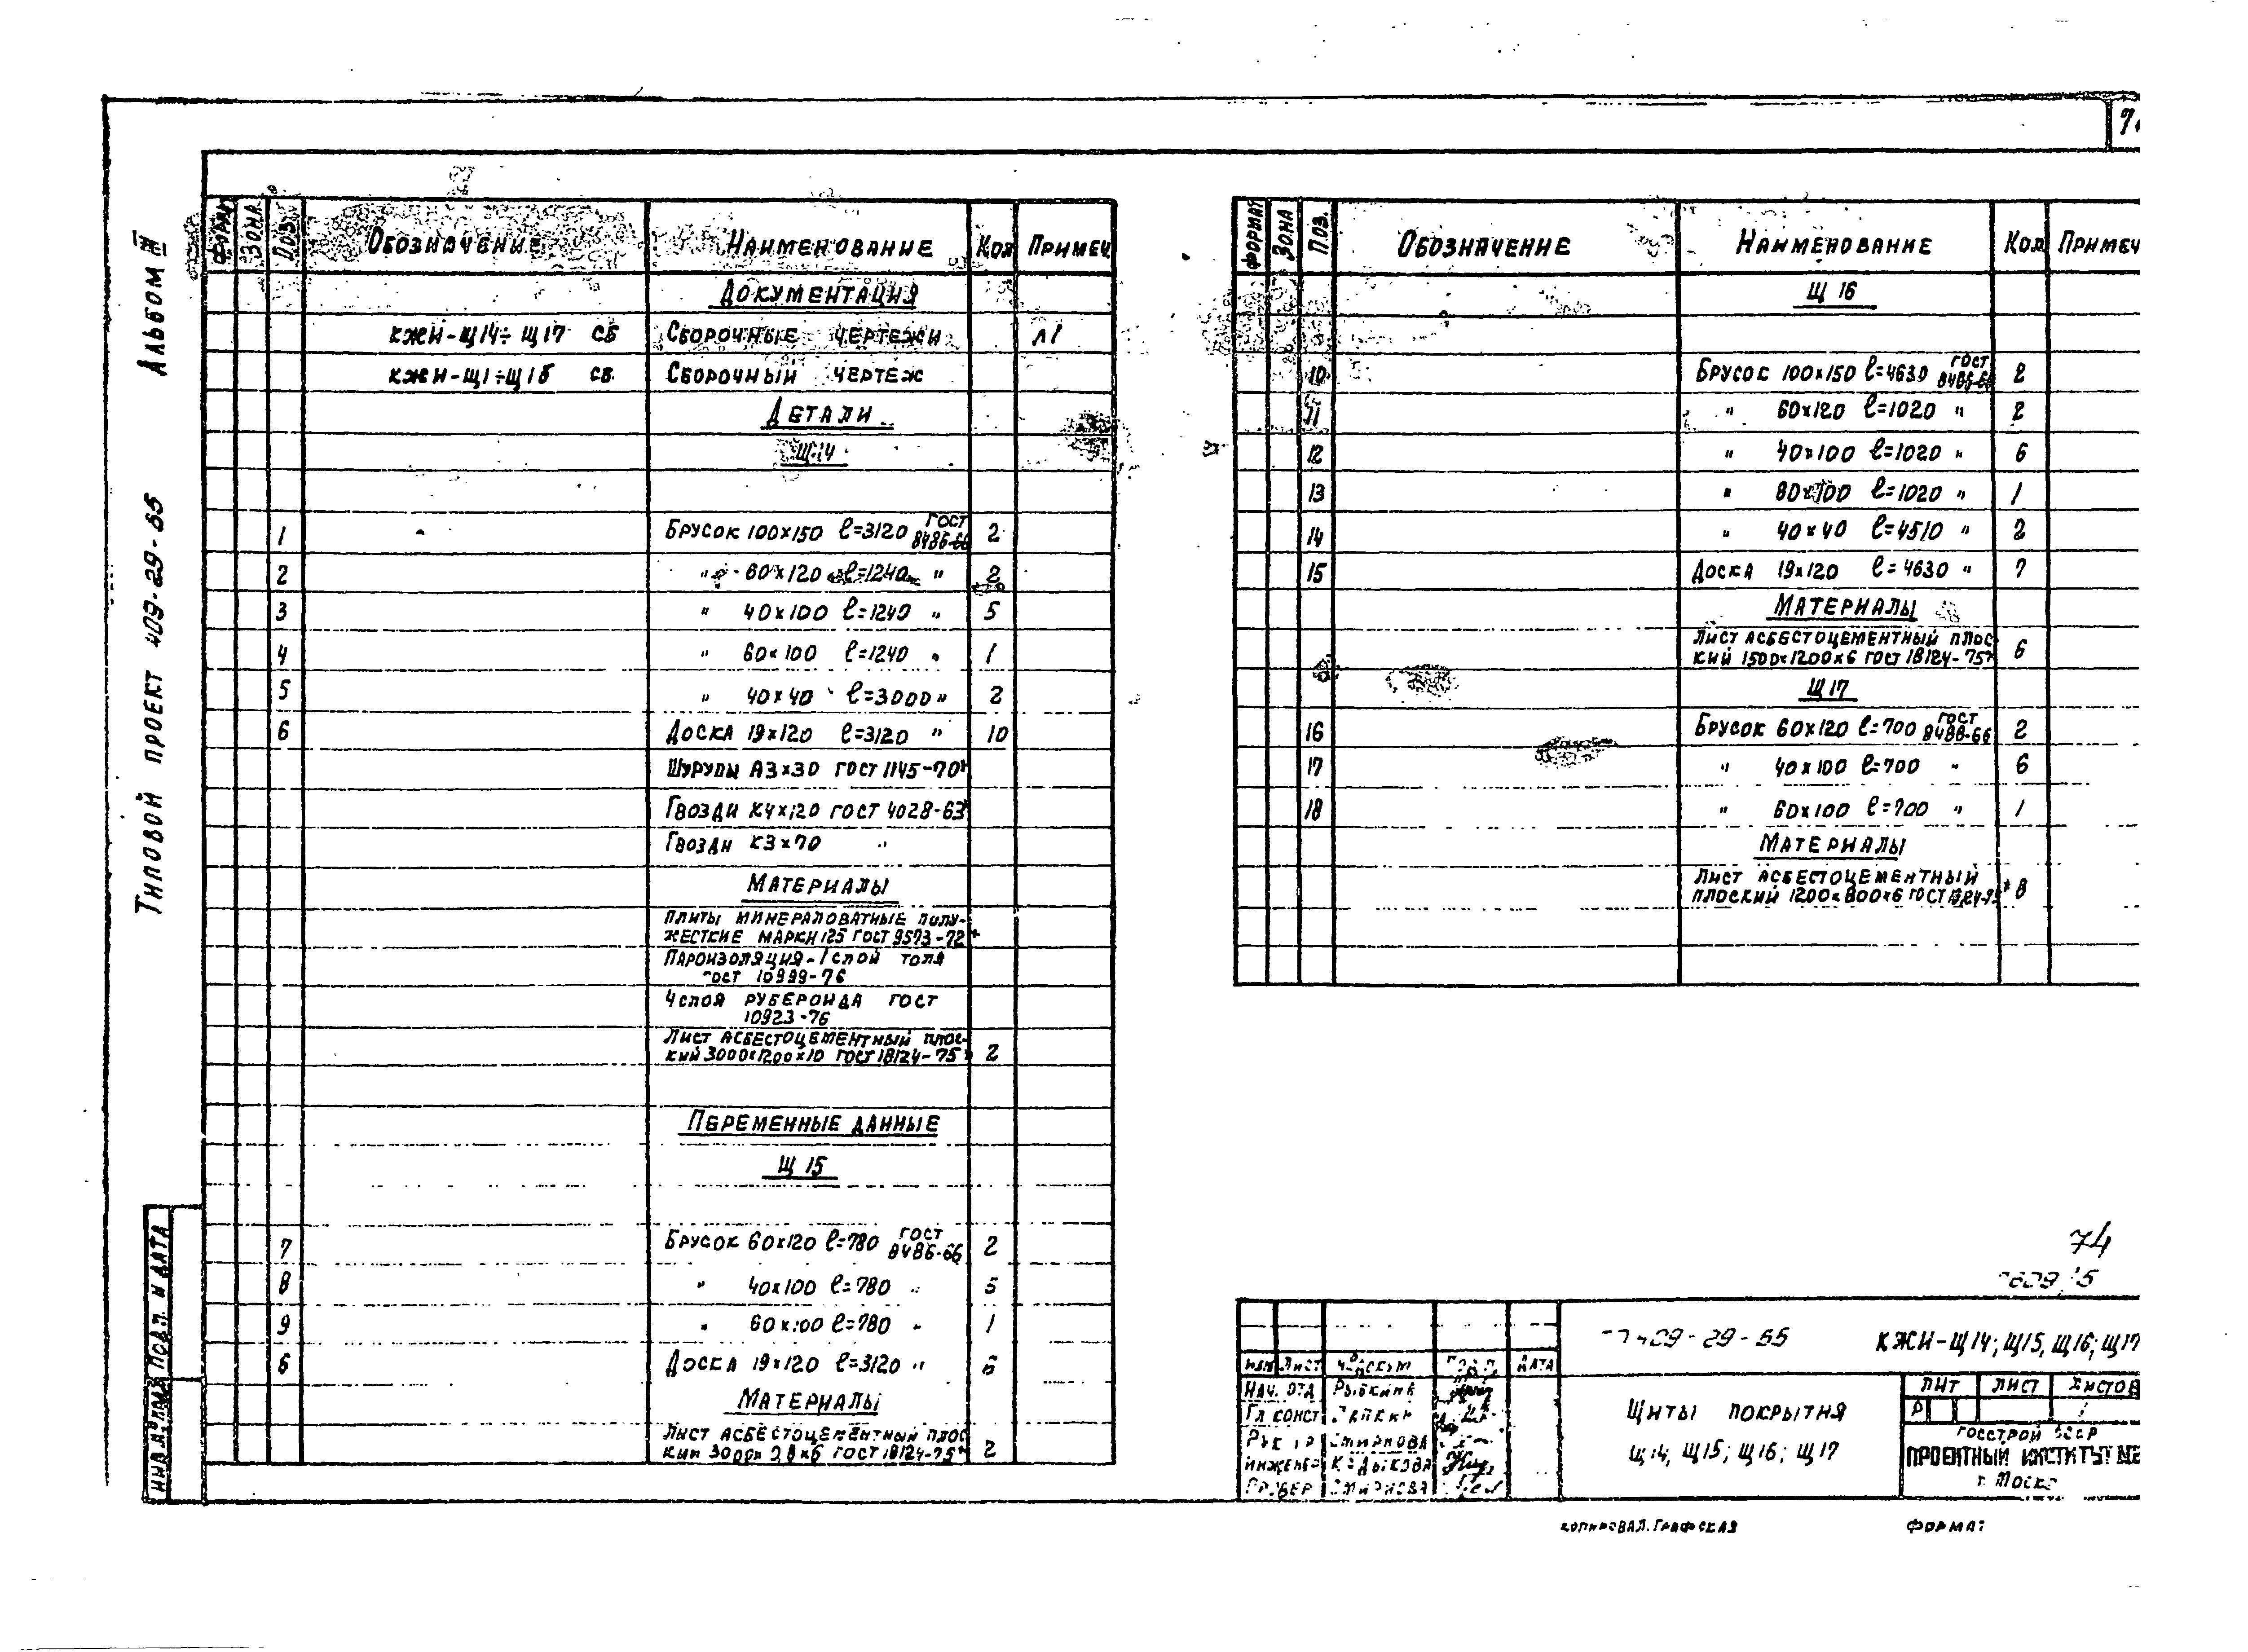 Альбом III
Типовой проект 409-29-65
Подп. и дата
Зона Поз. Обозначение Наименование Кол Примеч.
Документация
КЖИ-Щ14÷Щ17 СБ Сборочные чертежи Л1
КЖИ-Щ1÷Щ16 СБ Сборочный чертеж
Детали
Щ14
1 Брусок 100×150 ℓ=3120 ГОСТ 8486-66 2
2 " 60×120 ℓ=1240 " 2
3 " 40×100 ℓ=1240 " 5
4 " 60×100 ℓ=1240 " 1
5 " 40×40 ℓ=3000 " 2
6 Доска 19×120 ℓ=3120 " 10
Шурупы А3×30 ГОСТ 1145-70*
Гвозди К4×120 ГОСТ 4028-63*
Гвозди К3×70 "
Материалы
Плиты минераловатные полу-
жесткие марки 125 ГОСТ 9573-72*
Пароизоляция-1 слой толя
ГОСТ 10999-76
4 слоя рубероида ГОСТ
10923-76
Лист асбестоцементный плос-
кий 3000×1200×10 ГОСТ 18124-75* 2
Переменные данные
Щ 15
7 Брусок 60×120 ℓ=780 ГОСТ 8486-66 2
8 " 40×100 ℓ=780 " 5
9 " 60×100 ℓ=780 " 1
6 Доска 19×120 ℓ=3120 "
Материалы
Лист асбестоцементный плос
кий ГОСТ 18124-75* 2
Формат Зона Поз. Обозначение Наименование Кол Примеч
Щ 16
10 Брусок 100×150 ℓ=4630 ГОСТ 8486-66 2
11 " 60×120 ℓ=1020 " 2
12 " 40×100 ℓ=1020 " 6
13 " 80×100 ℓ=1020 " 1
14 " 40×40 ℓ=4510 " 2
15 Доска 19×120 ℓ=4630 " 7
Материалы
Лист асбестоцементный плос
кий 1500×1200×6 ГОСТ 18124-75* 6
Щ 17
16 Брусок 60×120 ℓ=700 ГОСТ 8486-66 2
17 " 40×100 ℓ=700 " 6
18 " 60×100 ℓ=700 " 1
Материалы
Лист асбестоцементный
плоский 1200×800×6 ГОСТ 8
74
КЖИ-Щ14; Щ15, Щ16; Щ17
Изм Лист Дата
Нач. отд Рыбкина
Гл конст
Смирнова
Инженер Кадыкова
Смирнова
Щиты покрытия
Щ14, Щ15; Щ16; Щ17
Лит Лист Листов
Р
Госстрой СССР
Проектный институт №2
г. Москв
Копировал. Графская Формат